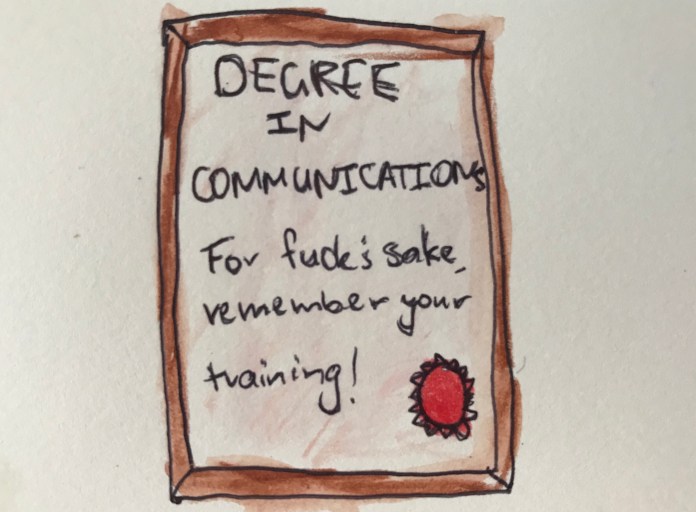 DEGREE
IN
COMMUNICATIONS
For fuck's sake,
remember your
training!